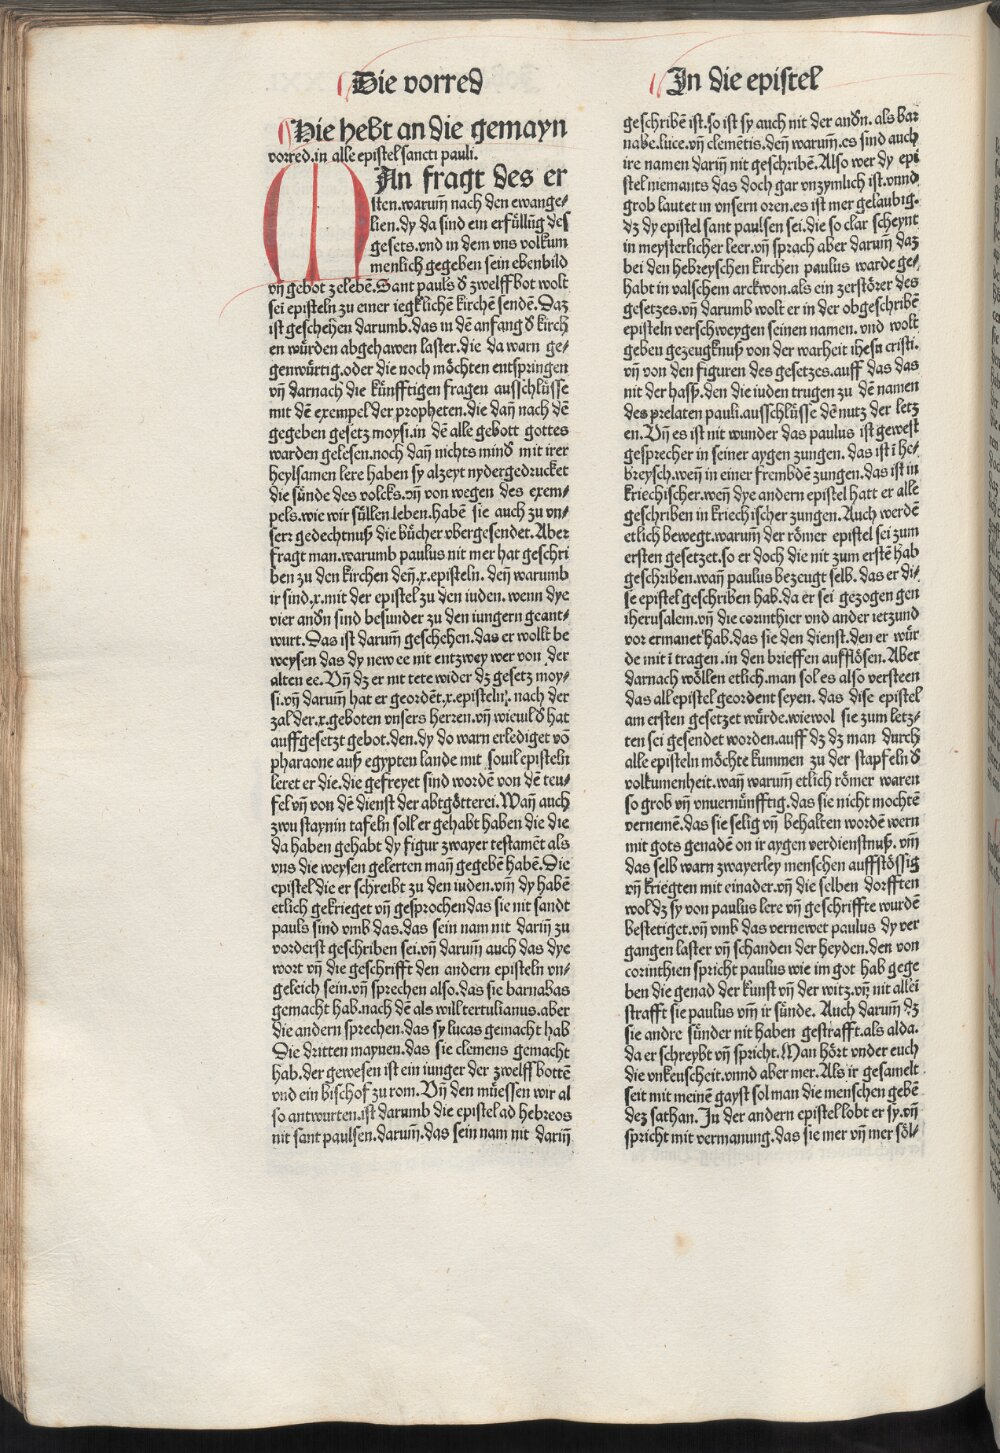 Die vorred
In die epistel
Hie hebt an die gemayn
vorred.in alle epistel sancti pauli.
MAn fragt des er
sten.warum̃ nach den ewange⸗
lien.dy da sind ein erfüllũg des
gesets.vnd in dem vns volkum
menlich gegeben sein ebenbild
vñ gebot zelebẽ.Sant pauls ď zwelffbot wolt
seĩ episteln zu einer iegklichẽ kirchẽ sendẽ.Daz
ist geschehen darumb.das in dẽ anfang ď kirch
en würden abgehawen laster.die da warn ge⸗
genwürtig.oder die noch möchten entspringen
vñ darnach die künfftigen fragen ausschlüsse
mit dẽ exempel der propheten.die dañ nach dẽ
gegeben gesetz moysi.in dẽ alle gebott gottes
warden gelesen.noch dañ nichts minď mit irer
heylsamen lere haben sy alzeyt nydergedrucket
die sünde des volcks.vñ von wegen des exem⸗
pels.wie wir süllen leben.habẽ sie auch zu vn⸗
serr gedechtnuß die bücher vbergesendet.Aber
fragt man.warumb paulus nit mer hat geschri
ben zu den kirchen deñ.x.episteln. deñ warumb
ir sind.x.mit der epistel zu den iuden.wenn dye
vier andn̄ sind besunder zu den iungern geant⸗
wurt.Das ist darum̃ geschehen.das er wollt be
weysen das dy new ee nit entzwey wer von der
alten ee.Vñ dz er nit tete wider dz gesetz moy⸗
si.vñ darum̃ hat er geordẽt.x.episteln. nach der
zal der.x.geboten vnsers herren.vñ wieuil ď hat
auffgesetzt gebot.den.dy do warn erlediget võ
pharaone auß egypten lande mit souil episteln
leret er die.die gefreyet sind wordẽ von dẽ teu⸗
fel vñ von dẽ dienst der abtgötterei.Wañ auch
zwu staynin tafeln soll er gehabt haben die die
da haben gehabt dy figur zwayer testamẽt als
vns die weysen gelerten mañ gegebẽ habẽ.Die
epistel die er schreibt zu den iuden.vm̃ dy habẽ
etlich gekrieget vñ gesprochen das sie nit sandt
pauls sind vmb das.das sein nam nit dariñ zu
vorderst geschriben sei.vñ darum̃ auch das dye
wort vñ die geschrifft den andern episteln vn⸗
geleich sein.vñ sprechen also.das sie barnabas
gemacht hab.nach dẽ als will tertulianus.aber
die andern sprechen.das sy lucas gemacht hab
Die dritten maynen.das sie clemens gemacht
hab.der gewesen ist ein iunger der zwelff bottẽ
vnd ein bischof zu rom.Vñ den müessen wir al
so antwurten.ist darumb die epistel ad hebreos
nit sant paulsen.darum̃.das sein nam nit dariñ
geschribẽ ist.so ist sy auch nit der andn̄. als bar
nabe.luce.vñ clemẽtis.deñ warum̃.es sind auch
ire namen dariñ nit geschribẽ.Also wer dy epi
stel niemants das doch gar vnzymlich ist.vnnd
grob lautet in vnsern oren.es ist mer gelaubig.
dz dy epistel sant paulsen sei.die so clar scheynt
in meysterlicher leer.vñ sprach aber darum̃ daz
bei den hebreyschen kirchen paulus warde ge⸗
habt in valschem arckwon.als ein zerstörer des
gesetzes.vñ darumb wolt er in der obgeschribẽ
episteln verschweygen seinen namen. vnd wolt
geben gezeugknuß von der warheit ihesu cristi.
vñ von den figuren des gesetzes.auff das das
nit der hasß.den die iuden trugen zu dẽ namen
des prelaten pauli.ausschlüsse dẽ nutz der letz
en.Vñ es ist nit wunder das paulus ist gewest
gesprecher in seiner aygen zungen. das ist ĩ he⸗
breysch.weñ in einer frembdẽ zungen.das ist in
kriechischer.weñ dye andern epistel hatt er alle
geschriben in kriechischer zungen.Auch werdẽ
etlich bewegt.warum̃ der römer epistel sei zum
ersten gesetzet.so er doch die nit zum erstẽ hab
geschriben.wañ paulus bezeugt selb. das er di⸗
se epistel geschriben hab.da er sei gezogen gen
iherusalem.vñ die corinthier vnd ander ietzund
vor ermanet hab.das sie den dienst.den er wür
de mit ĩ tragen.in den brieffen aufflösen.Aber
darnach wöllen etlich.man sol es also versteen
das all epistel geordent seyen. das dise epistel
am ersten gesetzet würde.wiewol sie zum letz⸗
ten sei gesendet worden.auff dz dz man durch
alle episteln möchte kummen zu der stapfeln ď
volkumenheit.wañ warum̃ etlich römer waren
so grob vñ vnuernünfftig.das sie nicht mochtẽ
vernemẽ.das sie selig vñ behalten wordẽ wern
mit gots genadẽ on ir aygen verdienstnuß. vm̃
das selb warn zwayerley menschen auffstössig
vñ kriegten mit einader.vñ die selben dorfften
wol dz sy von paulus lere vñ geschriffte wurdẽ
bestetiget.vñ vmb das vernewet paulus dy ver
gangen laster vñ schanden der heyden.den von
corinthien spricht paulus wie im got hab gege
ben die genad der kunst vñ der witz.vñ nit allei
strafft sie paulus vm̃ ir sünde. Auch darum̃ dz
sie andre sünder nit haben gestrafft.als alda.
da er schreybt vñ spricht.Man hört vnder euch
die vnkeuscheit.vnnd aber mer.Als ir gesamelt
seit mit meinẽ gayst sol man die menschen gebẽ
dez sathan.In der andern epistel lobt er sy.vñ
spricht mit vermanung.das sie mer vñ mer söl⸗